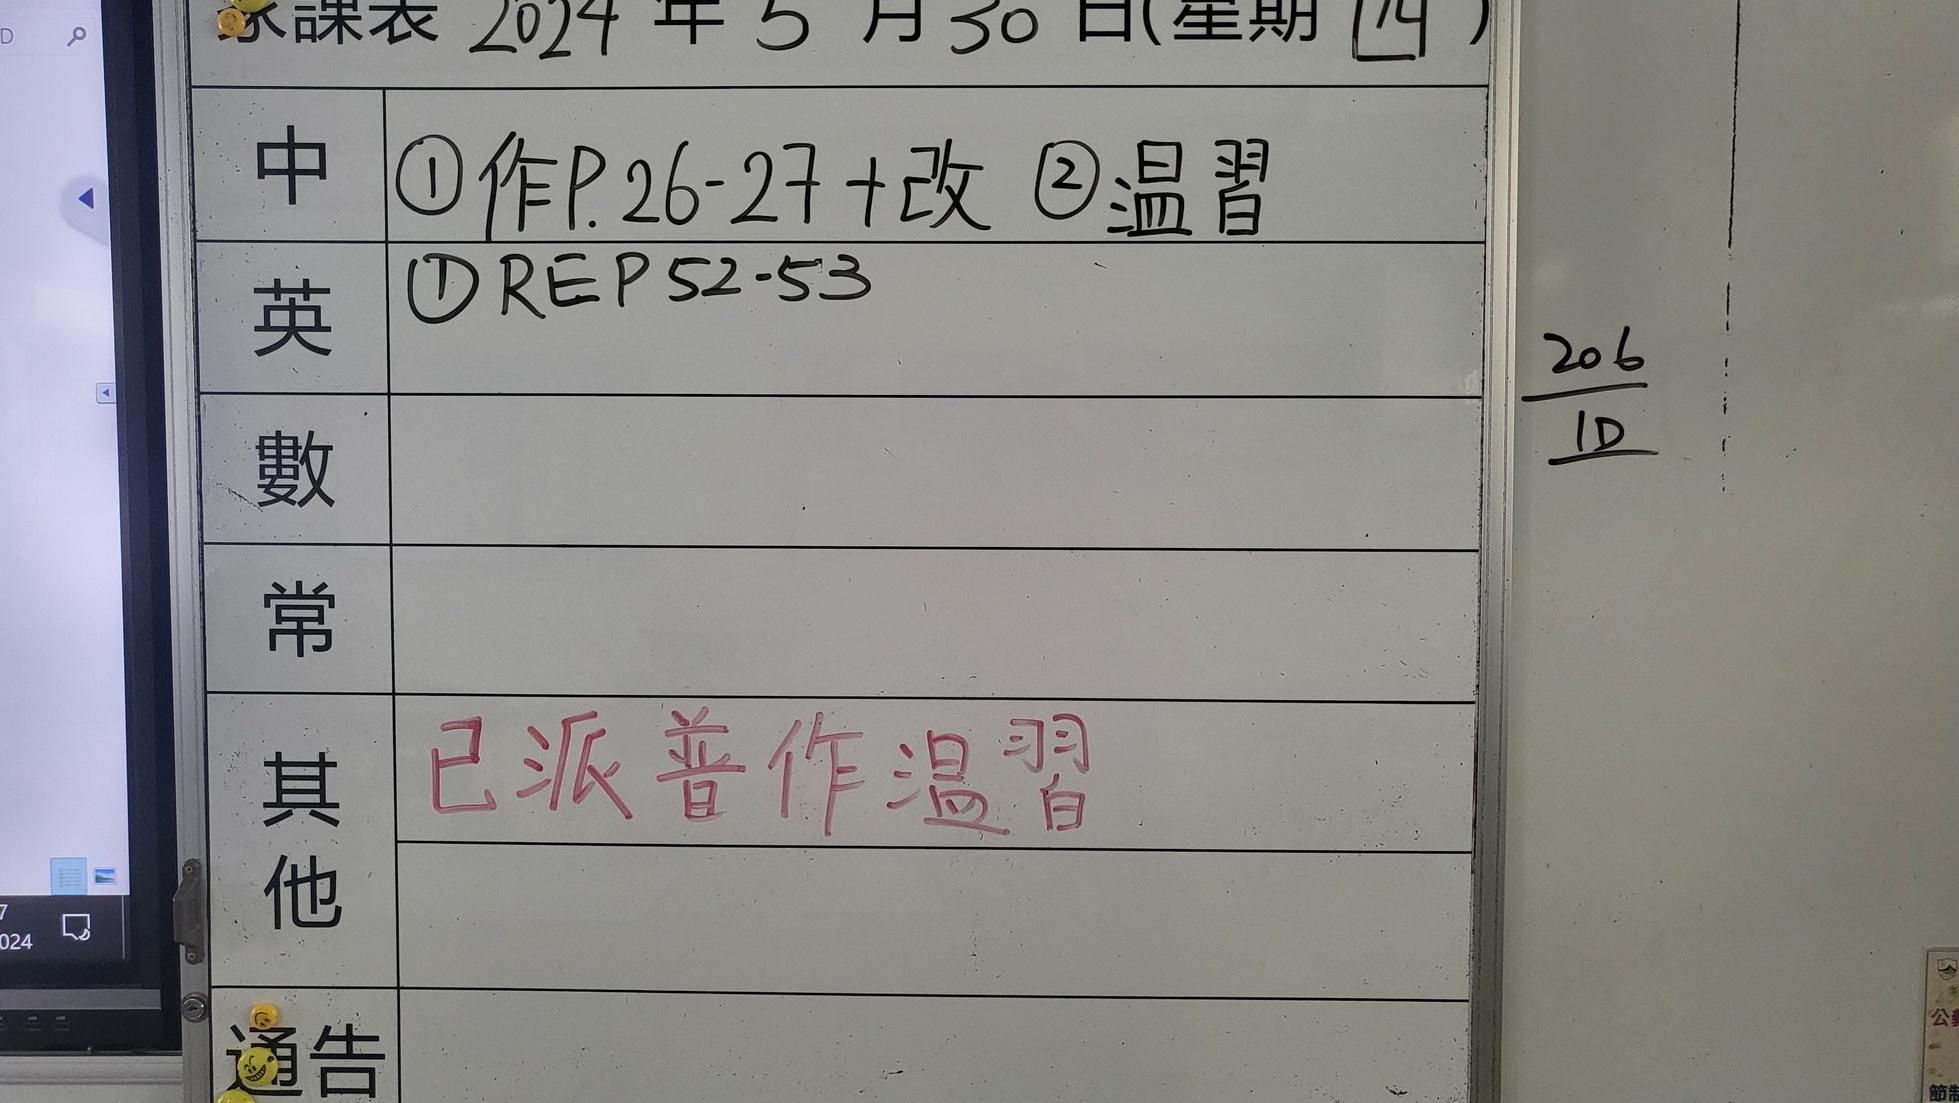 家課表 2024 年 5 月 30 日(星期 四 )
中 ①作P.26-27+改 ②温習
英 ①REP52-53
數
常
其他 已派普作温習
通告
206
1D
D
7
024
公
節制